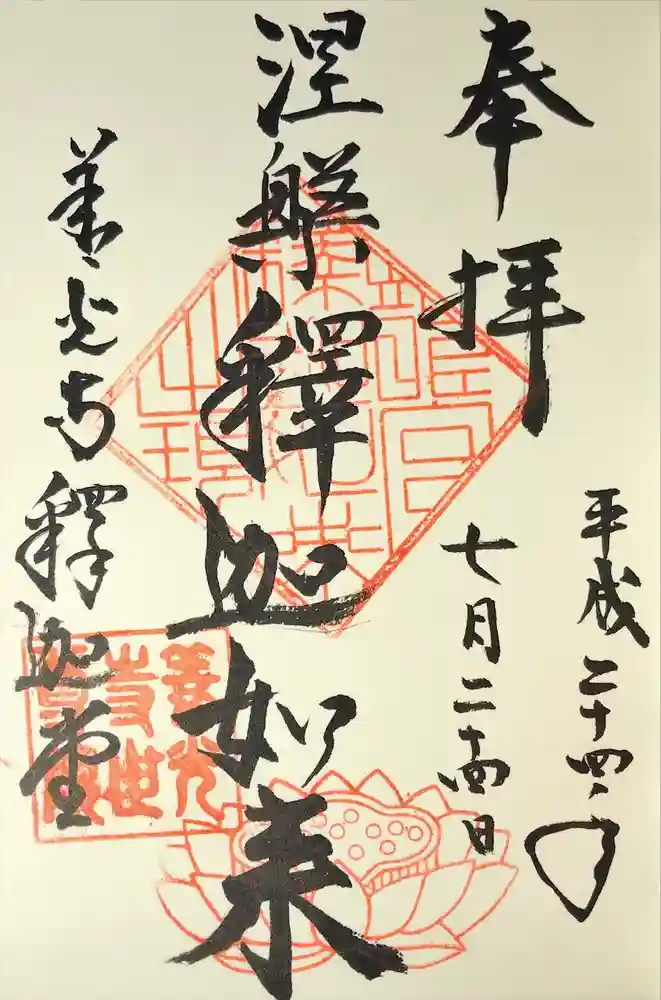 奉拝
平成二十四年
七月二十四日
涅槃釋迦如来
善光寺釋迦堂
善光
寺世
尊院